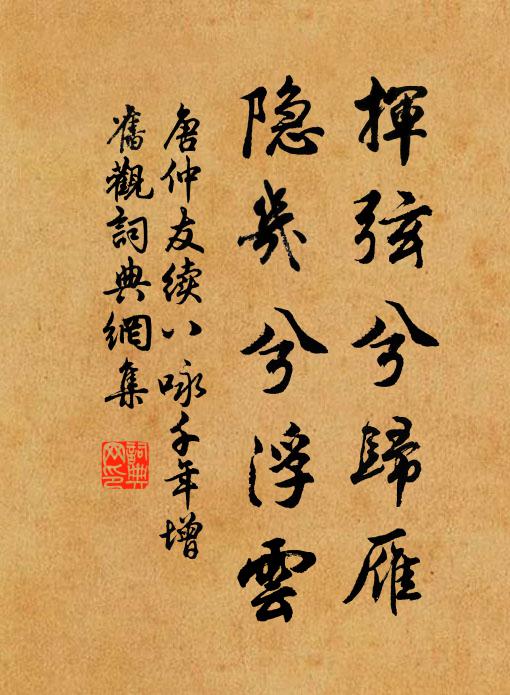 揮弦兮歸雁
隐幾兮浮雲
唐仲友續八咏千年增
舊觀詞典網集
詞典
网印